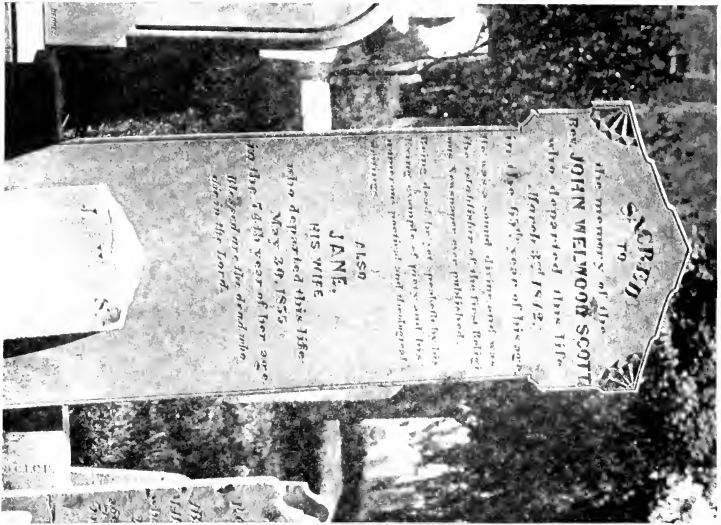 SACRED
TO
the memory of the
Rev. JOHN WELWOOD SCOTT,
who departed this life
March 3d 1842.
In the 63d year of his age
He was a sound divine and was
the establisher of the first Religi
ous Newspaper ever published.
Being dead, he yet speaketh by his
living example of piety and his
numerous poetical and theological
writings.
ALSO,
JANE,
HIS WIFE
who departed this life
May 30, 1855
in the 74th year of her age
Blessed are the dead who
die in the Lord.